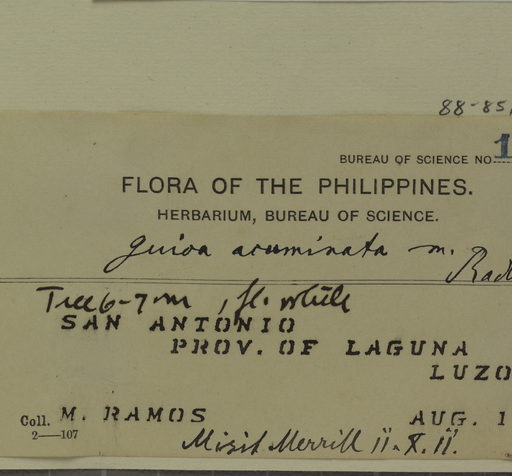 88-85
BUREAU OF SCIENCE NO. 1
FLORA OF THE PHILIPPINES.
HERBARIUM, BUREAU OF SCIENCE.
Guioa acuminata m. Radl
Tree 6-7 m, fl. white
SAN ANTONIO
PROV. OF LAGUNA
LUZO
Coll. M. RAMOS AUG. 1
2—107
Misit Merrill II. X. 11.